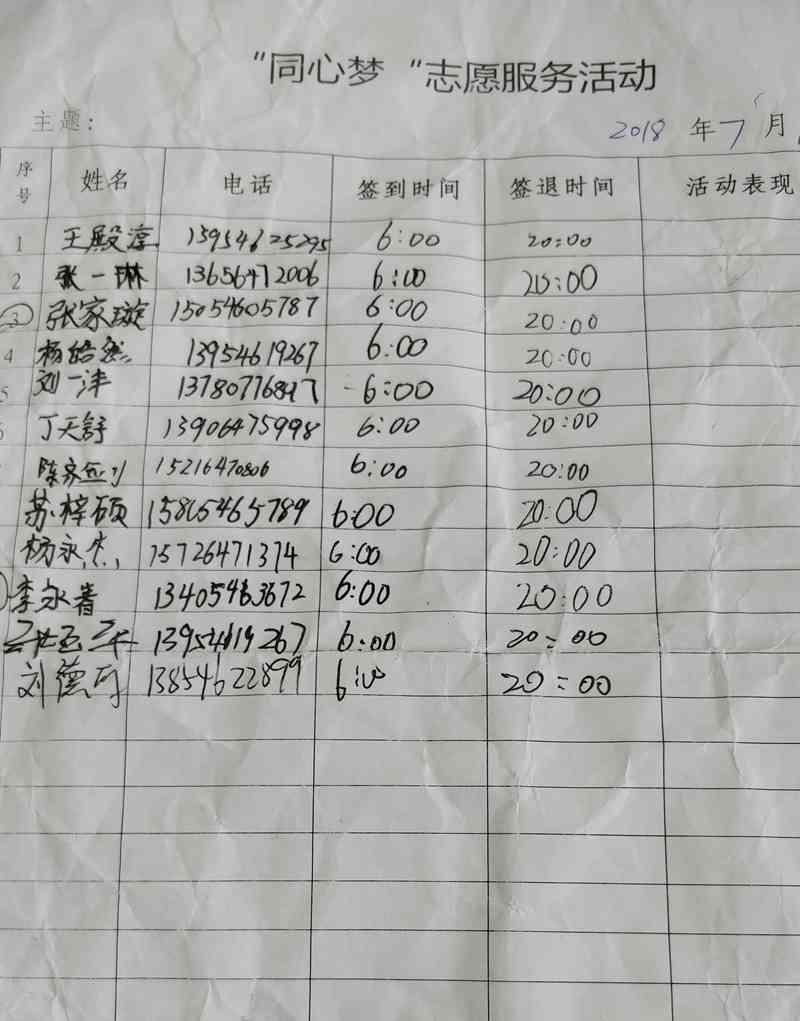 “同心梦“志愿服务活动
主题： 2018 年 7 月
序号 姓名 电话 签到时间 签退时间 活动表现
1 王殿淳 15954625295 6:00 20:00
2 张一琳 13656472006 6:00 20:00
3 张家璇 15054605787 6:00 20:00
4 杨皓然 13954619267 6:00 20:00
5 刘一沣 6:00 20:00
丁天舒 13906475998 6:00 20:00
陈家 15216470806 6:00 20:00
苏梓硕 15865465789 6:00 20:00
杨永杰 15726471374 6:00 20:00
李永 13405463672 6:00 20:00
13954619267 6:00 20:00
刘德 13854622899 6:00 20:00